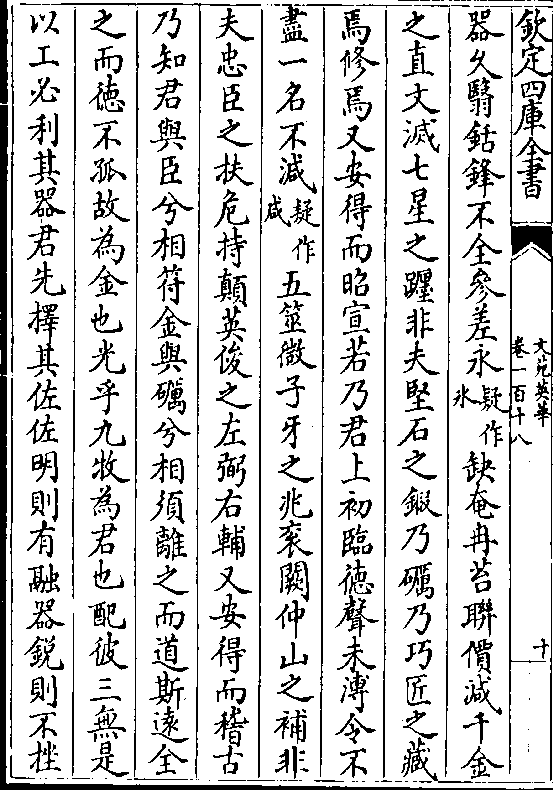 欽定四庫全書
文苑英華
卷一百十八
十
器久翳銛鋒不全參差永疑作氷缺奄冉苔聯價減千金
之直文滅七星之躔非夫堅石之鍜乃礪乃巧匠之藏
焉修焉又安得而昭宣若乃君上初臨德聲未溥令不
盡一名不減疑作咸五筮微子牙之兆衮闕仲山之補非
夫忠臣之扶危持顛英俊之左弼右輔又安得而稽古
乃知君與臣兮相符金與礪兮相須離之而道斯逺全
之而徳不孤故為金也光乎九牧為君也配彼三無是
以工必利其器君先擇其佐佐明則有融器鋭則不挫